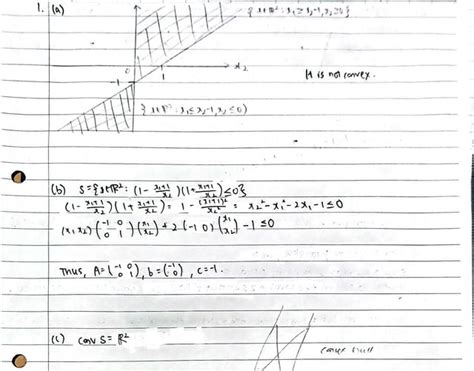 1. (a) { x∈ℝ² : x₁ ≥ x₂-1, x₂ ≥ 0 }
0 1 x₂
-1
It is not convex.
{ x∈ℝ² : x₁ ≤ x₂-1, x₂ ≤ 0 }
(b) S = { x∈ℝ² : (1 - (x₁+1)/x₂)(1 + (x₁+1)/x₂) ≤ 0 }
(1 - (x₁+1)/x₂)(1 + (x₁+1)/x₂) = 1 - (x₁+1)²/x₂² = x₂² - x₁² - 2x₁ - 1 ≤ 0
(x₁ x₂) (-1 0; 0 1) (x₁; x₂) + 2 (-1 0) (x₁; x₂) - 1 ≤ 0
Thus, A = (-1 0; 0 1), b = (-1; 0), c = -1.
(c) conv S = ℝ²